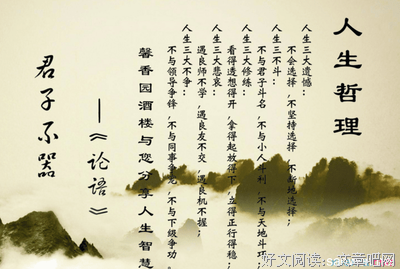 人生哲理
人生三大遗憾：
不会选择，不坚持选择，不断地选择；
人生三不斗：
不与君子斗名，不与小人斗利，不与天地斗巧。
人生三大修炼：
看得透想得开，拿得起放得下，立得正行得稳；
人生三大悲哀：
遇良师不学，遇良友不交，遇良机不握；
人生三大不争：
不与领导争锋，不与同事争宠，不与下级争功。
馨香园酒楼与您分享人生智慧
——《论语》
君子不器
好文阅读：文章吧网